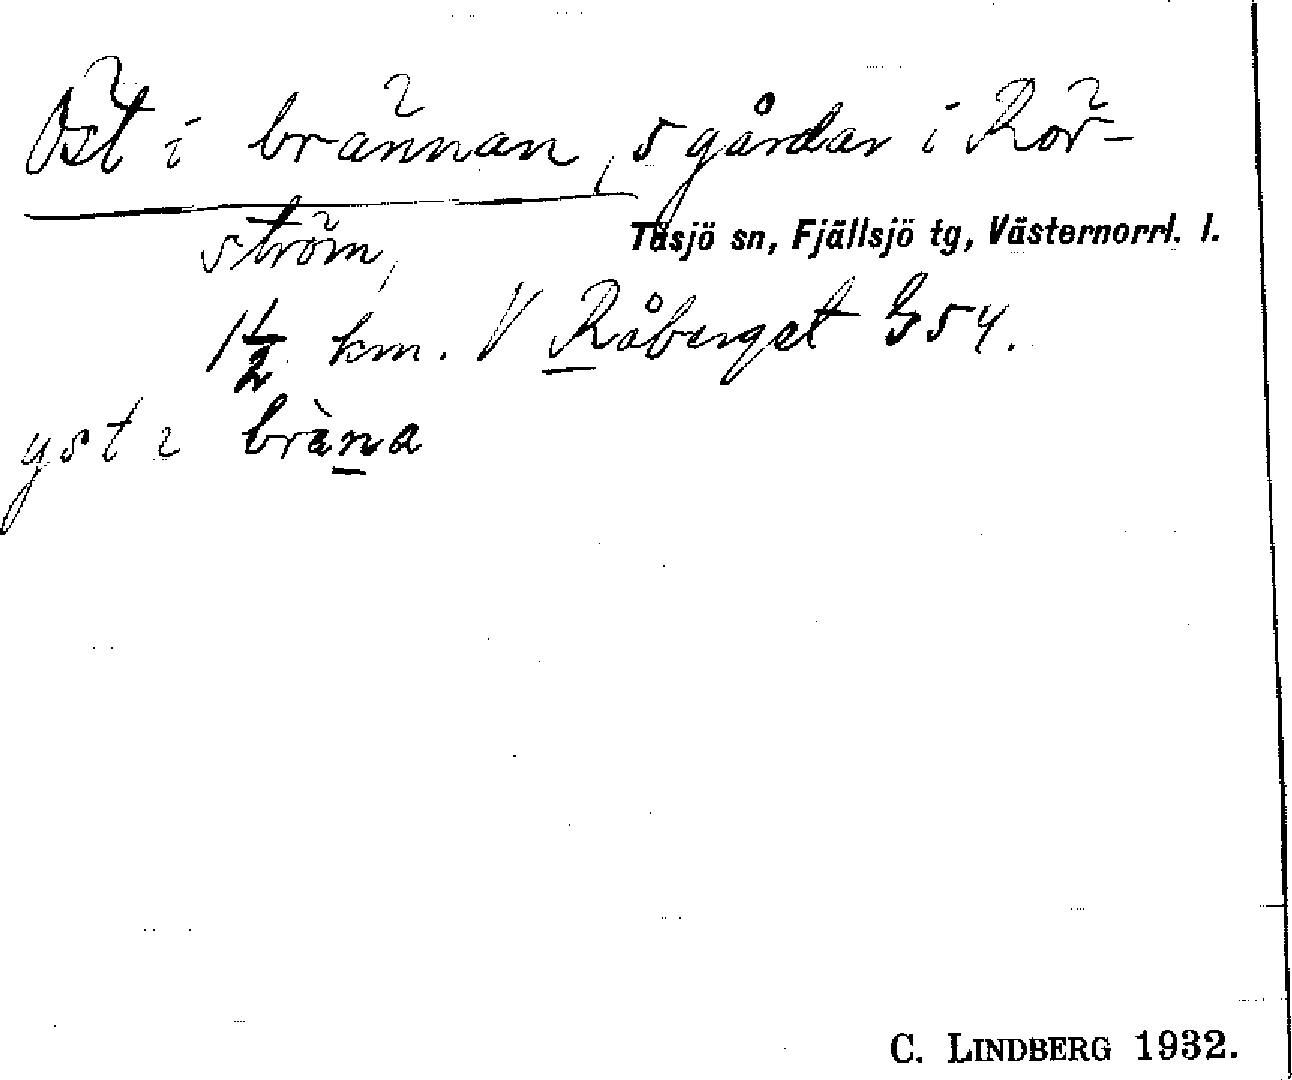 Öst i brännan, 5 gårdar i Rör-
ström,
Tåsjö sn, Fjällsjö tg, Västernorrl. l.
1 1/2 km. V Råberget G54.
yst ɩ brὰna
C. LINDBERG 1932.